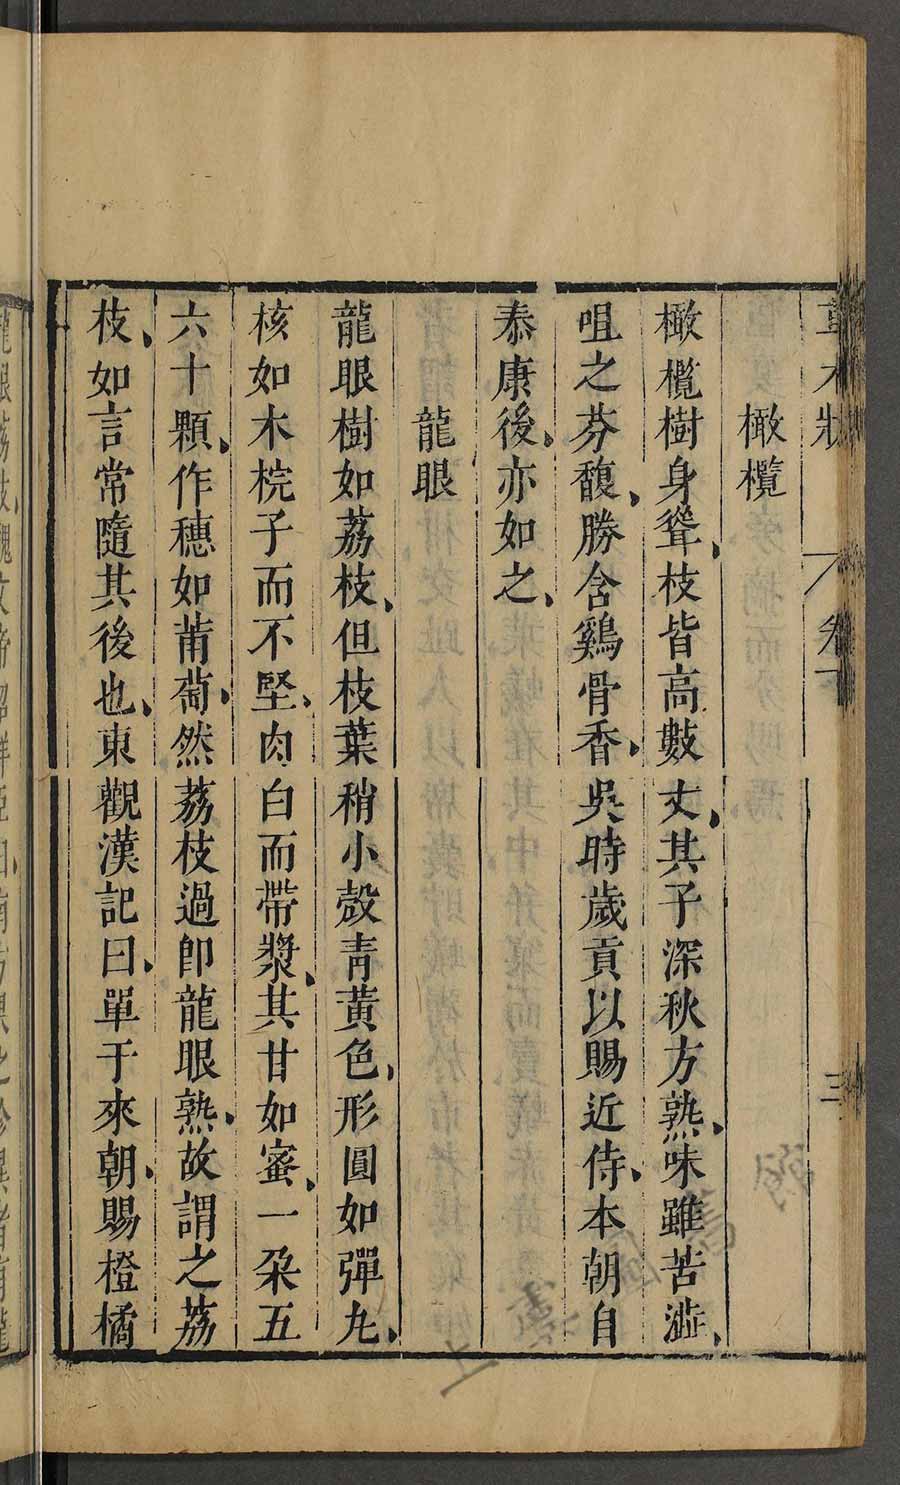 草木狀 卷下 三
橄欖
橄欖樹身聳、枝皆高數丈、其子深秋方熟、味雖苦澁、
咀之芬馥、勝含鷄骨香、吳時歲貢以賜近侍、本朝自
泰康後、亦如之、
龍眼
龍眼樹如荔枝、但枝葉稍小殼青黃色、形圓如彈丸、
核如木梡子而不堅、肉白而帶漿、其甘如蜜、一朶五
六十顆、作穗如莆萄、然荔枝過卽龍眼熟、故謂之荔
枝、如言常隨其後也、東觀漢記曰、單于來朝、賜橙橘